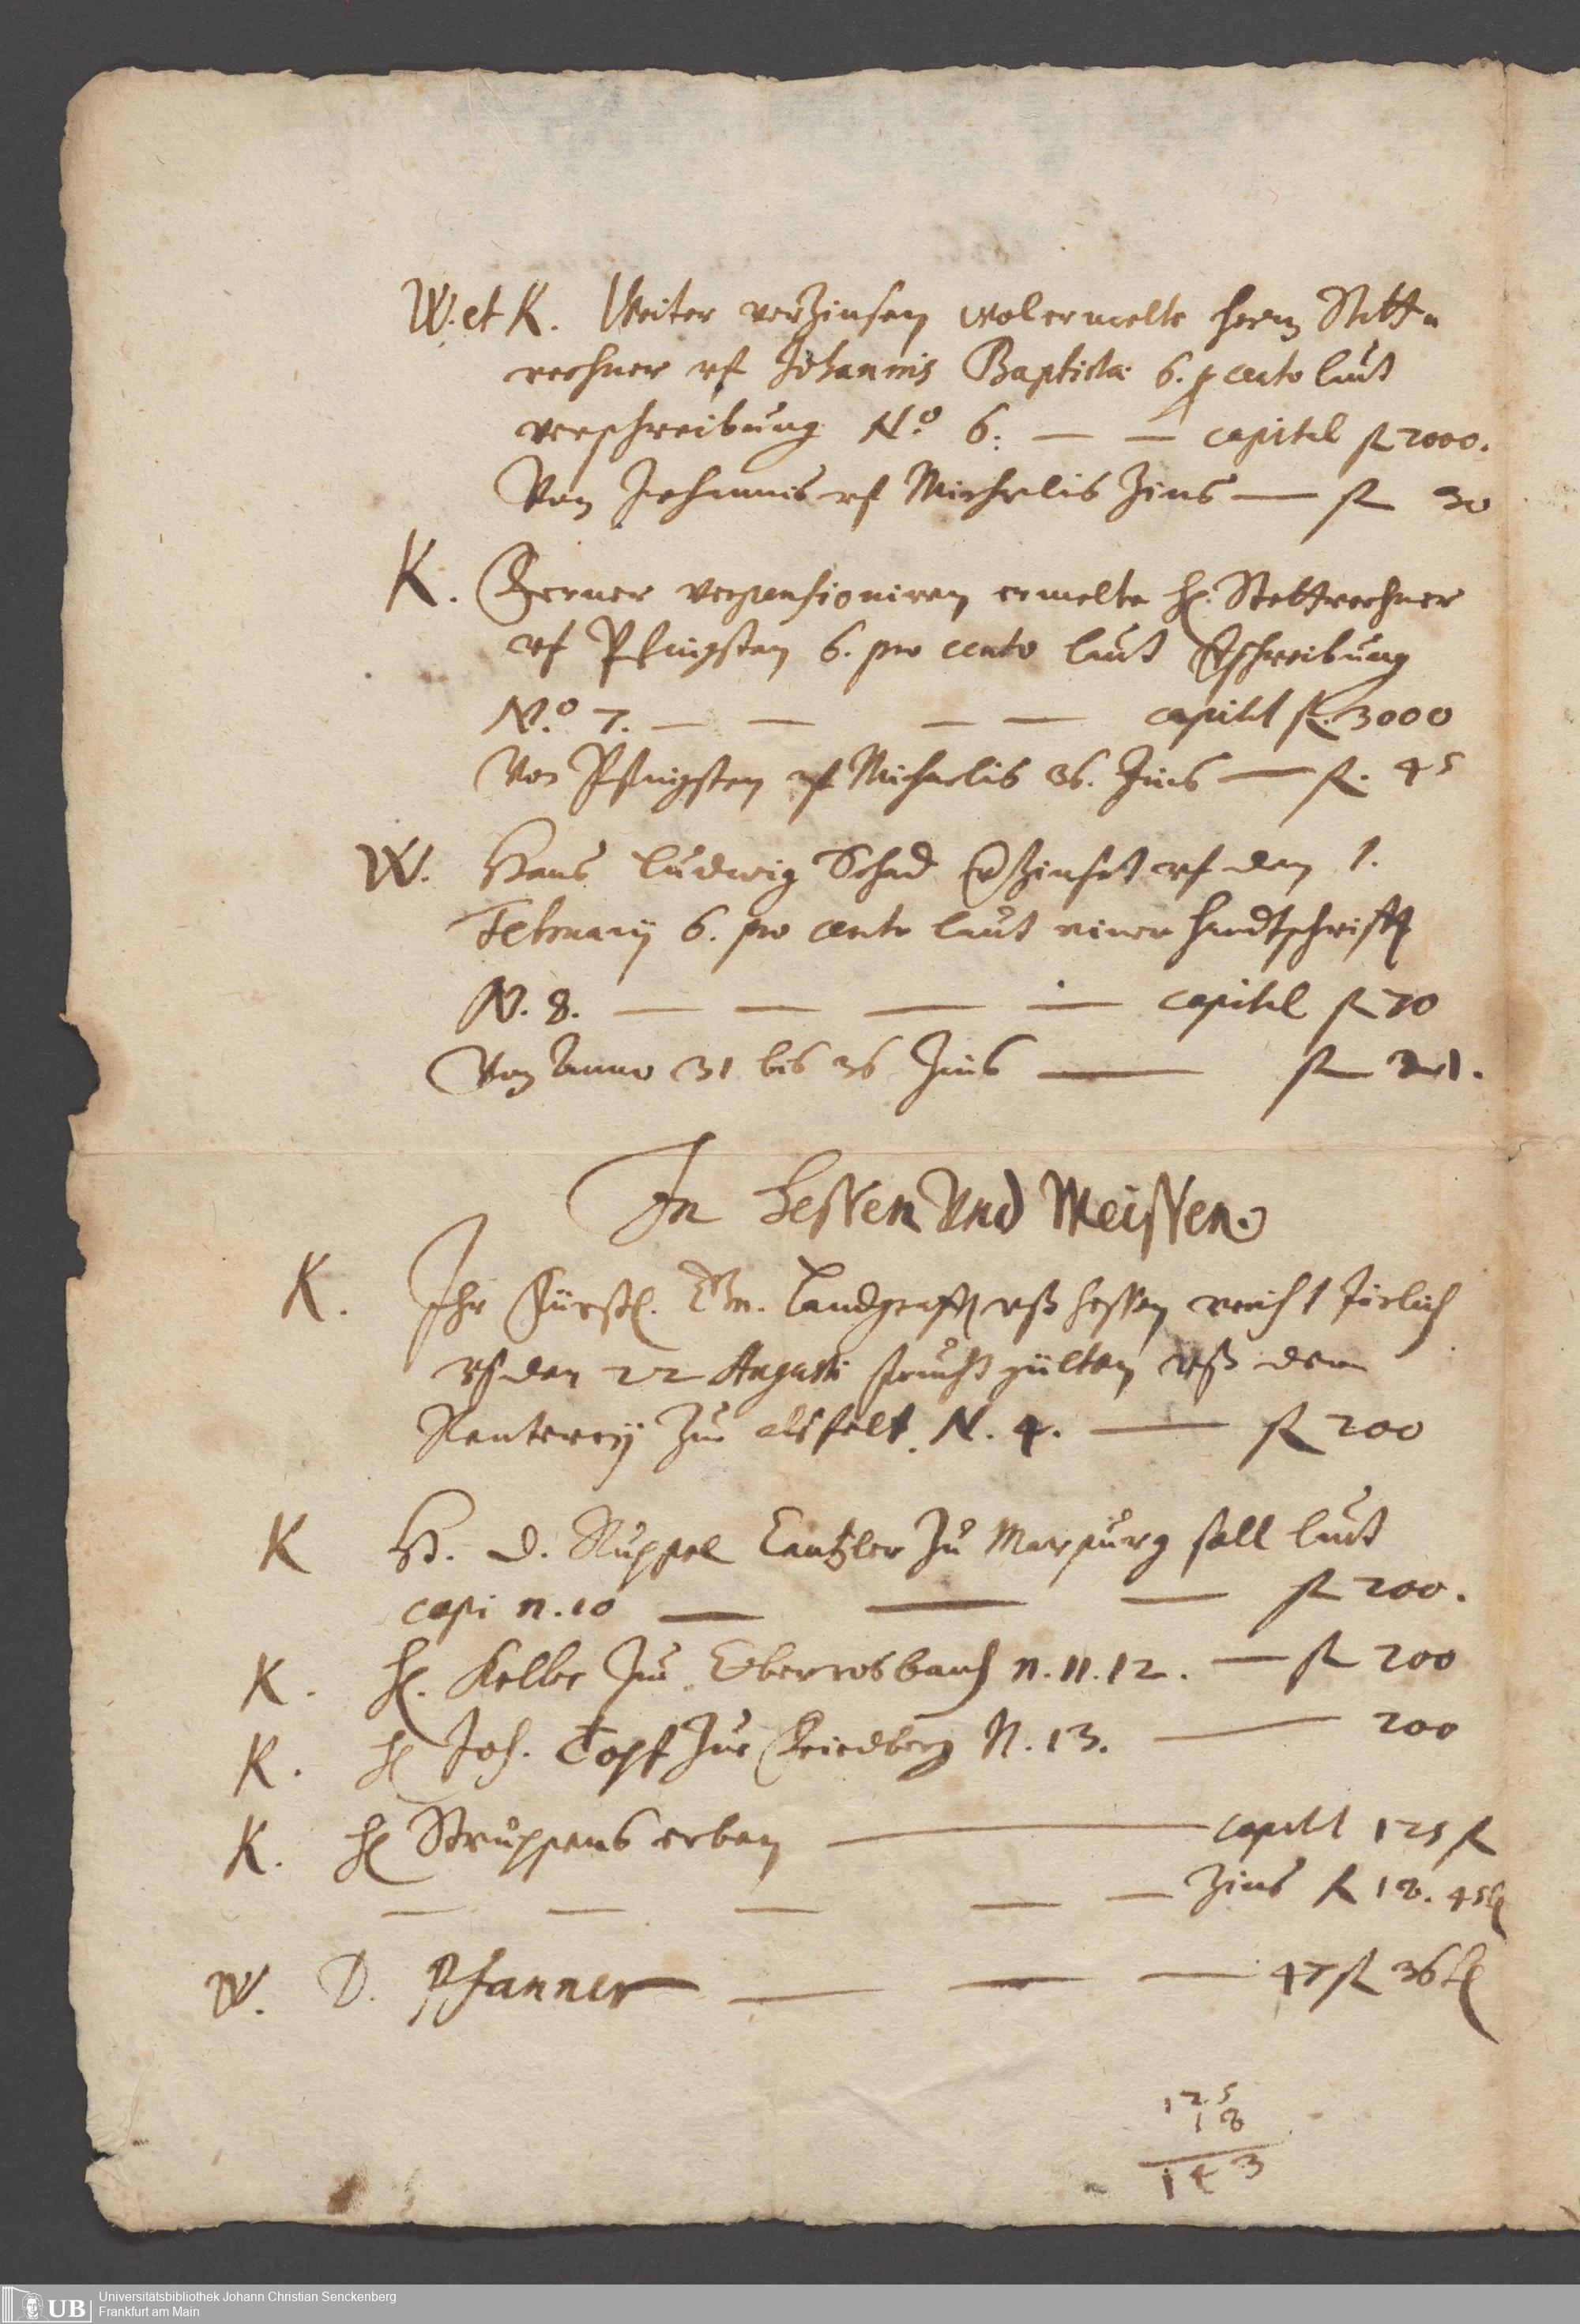 W. et K. Weiter verZinsen wolermelte herrn Statt-
rechner vf Johannis Baptistæ 6. p cento laut
verschreibung N.º 6. — — capital fl 2000.
Von Johannis vf Michelis Zins — fl 30
K. Ferner verpensioniren ermelte H. Stattrechner
vf Pfingsten 6. pro cento laut Vschreibung
N.º 7. — — — — capital fl. 3000
Von Pfingsten vf Michaelis 36. Zins — fl. 45
W. Hans Ludwig Schad VZinset vf den 1.
Februarij 6. pro cento laut einer handtschrifft
N. 8. — — — — capital fl 70
Von Anno 31 bis 36 Zins — fl 21.
In Hessen Vnd Meissen.
K. Ihr Fürstl. Gn. Landgraff vß hessen reicht Järlich
vf den 22 Augusti frucht gülten vß der
Renterey Zu alsfelt N. 4. — fl 200
K H. D. Ruppel Cantzler Zu Marpurg soll laut
copi n. 10 — — — fl 200.
K. H. Kelber Zu Oberrosbach n. 11. 12. — fl 200
K. H Joh. Topf Zue Friedberg N. 13. — 200
K. H Struppens erben — capitl 125 fl
— — — — — Zins fl 18. 45 ß
W. D. Pfanner — — — 47 fl 36 ß
125
18
143
Universitätsbibliothek Johann Christian Senckenberg
UB Frankfurt am Main